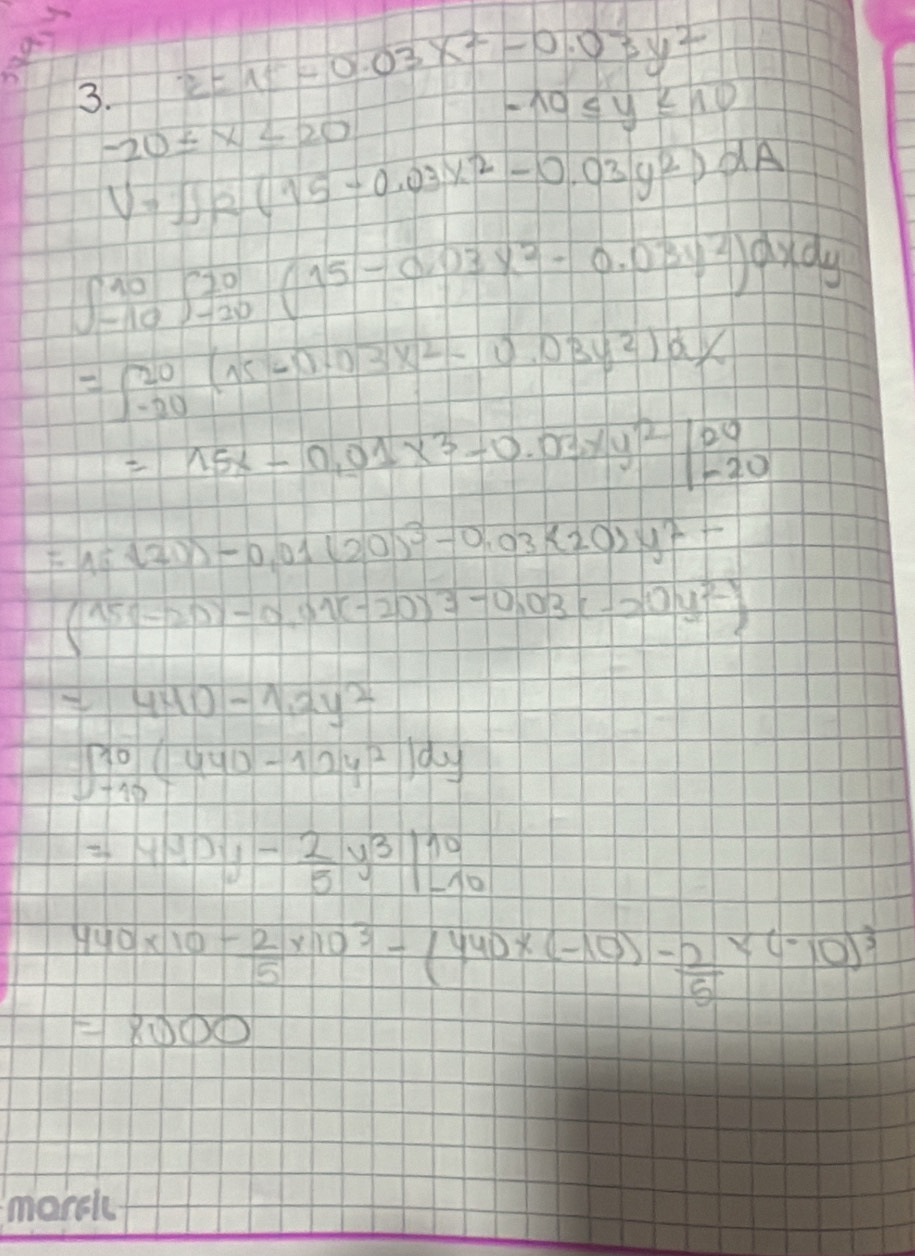 3. z = 15 - 0.03x² - 0.03y²
-20 ≤ x ≤ 20 -10 ≤ y ≤ 10
V = ∬R (15 - 0.03x² - 0.03y²) dA
∫10 -10 ∫20 -20 (15 - 0.03x² - 0.03y²) dxdy
= ∫20 -20 (15 - 0.03x² - 0.03y²) dx
= 15x - 0,01x³ - 0.03xy² |20 -20
= 15(20) - 0,01(20)³ - 0,03(20)y² -
(15(-20) - 0,01(-20)³ - 0,03(-20)y²)
= 440 - 1.2y²
∫10 -10 (440 - 1.2y²) dy
= 440y - 2/5 y³ |10 -10
440×10 - 2/5 ×10³ - (440×(-10) - 2/5 ×(-10)³
= 8000